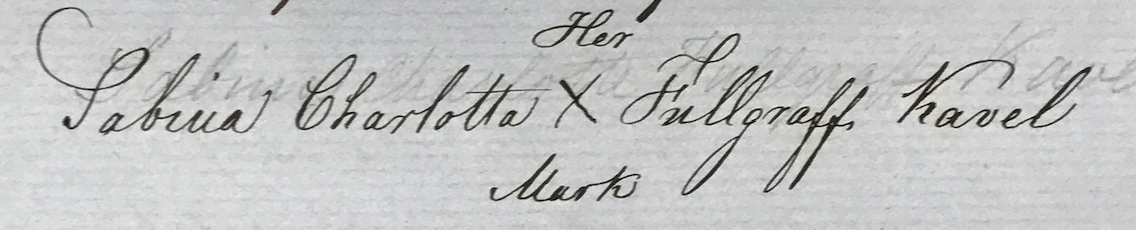 Her
Sabina Charlotta X Fullgraff Kavel
Mark